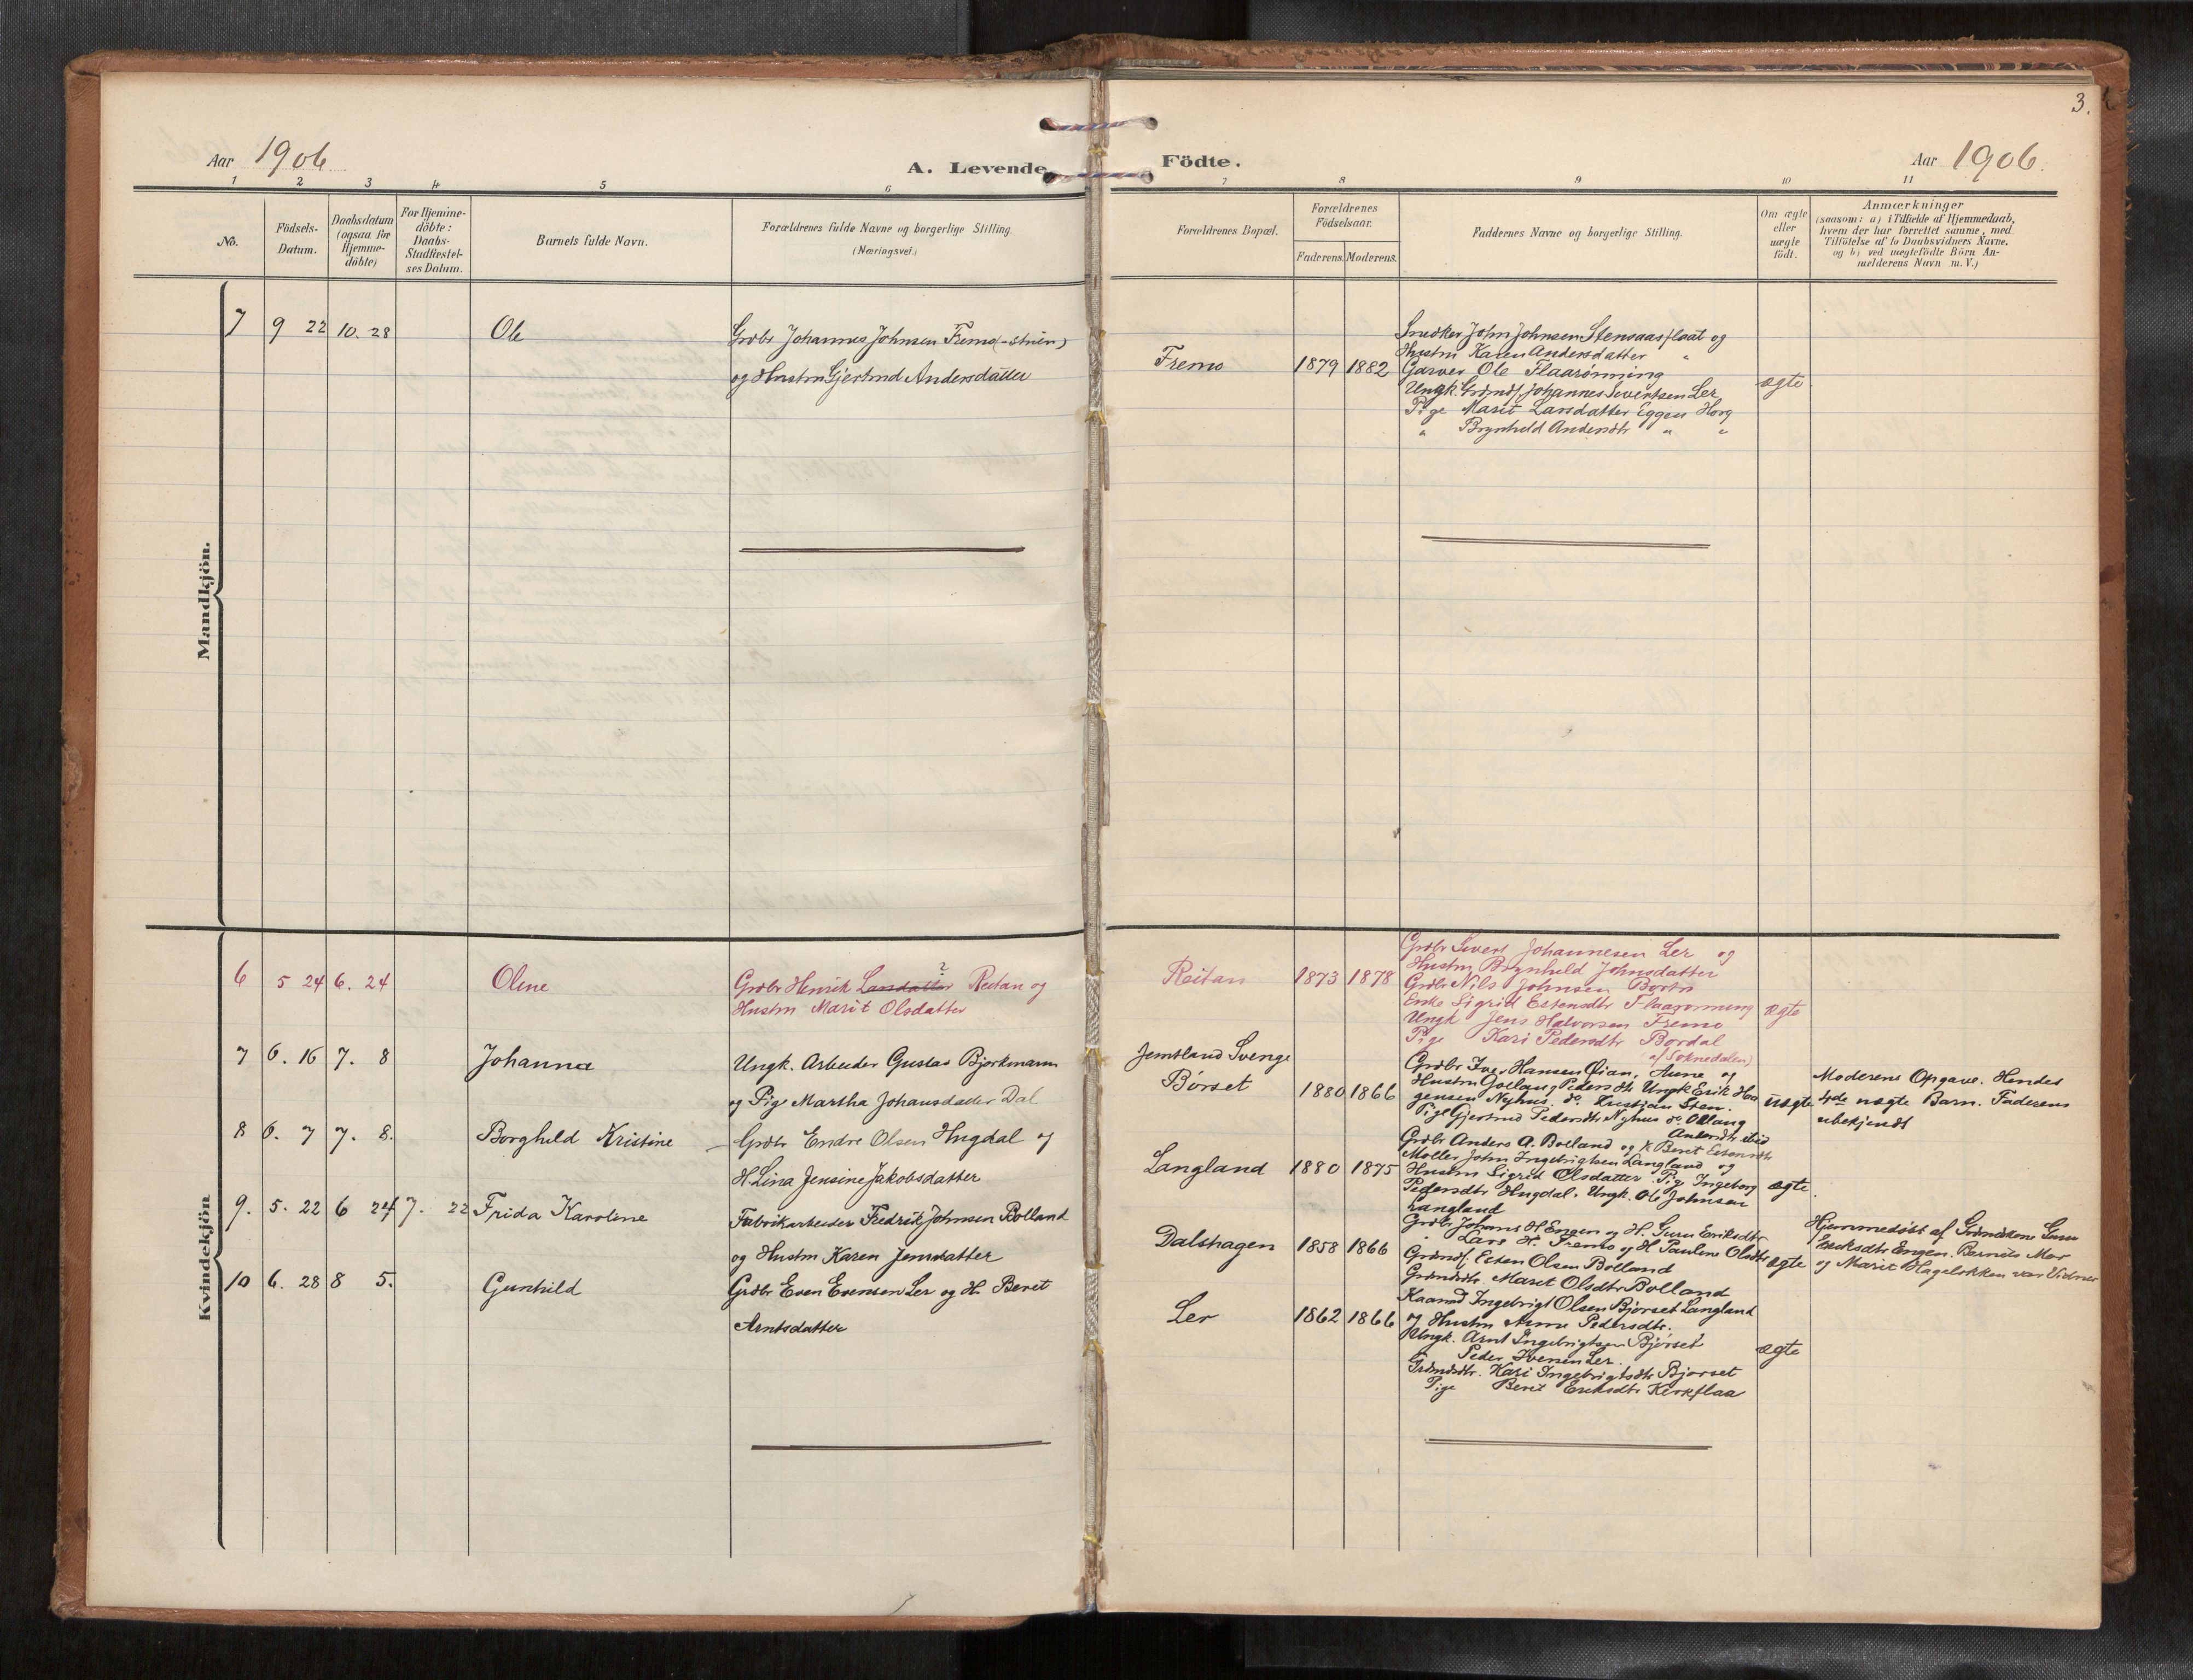 3.
Aar 1906
A. Levende
Födte.
Aar 1906.
1 2 3 4 5 6 7 8 9 10 11
No.
Födsels-
Datum.
Daabsdatum
(ogsaa for
Hjemme-
döbte)
For Hjemme-
döbte:
Daabs-
Stadfestel-
ses Datum.
Barnets fulde Navn.
Forældrenes fulde Navne og borgerlige Stilling
(Næringsvei.)
Forældrenes Bopæl.
Forældrenes
Födselsaar.
Faderens. Moderens.
Faddernes Navne og borgerlige Stilling.
Om ægte
eller
uægte
födt.
Anmærkninger
(saasom: a) i Tilfælde af Hjemmedaab,
hvem der har forrettet samme, med
Tilföielse af to Daabsvidners Navne.
og b) ved uægtefödte Börn An-
melderens Navn m. V.)
Mandkjön.
7 9 22 10. 28 Ole
Grdbr Johannes Johnsen Fremo (-stuen)
og Hustru Gjertrud Andersdatter
Fremo 1879 1882
Snedker John Johnsen Stensaasflaat og
Hustru Karen Andersdatter "
Garver Ole Flaarønning
Ungk. Grdmdf. Johannes Sivertsen Ler
Pige Marit Larsdatter Eggen Horg
" Brynhild Andersdtr " "
ægte
Kvindekjön
6 5 24 6. 24 Oline
Grdbr Henrik Larsdatter ? Reitan og
Hustru Marit Olsdatter
Reitan 1873 1878
Grdbr Sivert Johannesen Ler og
Hustru Brynhild Johnsdatter
Grdbr Nils Johnsen Bortn
Enke Sigrid Estensdtr Flaarønning
Ungk Jens Halvorsen Fremo
Pige Kari Pedersdtr Bordal
af Soknedalen)
ægte
7 6. 16 7. 8 Johanna
Ungk. Arbeider Gustav Bjørkmann
og Pige Martha Johansdatter Dal
Jemtland Sverige
Børset 1880 1866
Grdbr Iver Hansen Øian, Aune og
Hustru Gollaug Pedersdtr Ungk Erik Haa
gensen Nyhus. do. Kristian Sten.
Pige Gjertrud Pedersdtr Nyhus do. Ollaug
Andersdtr ibid
uægte
Moderens Opgave. Hendes
4de uægte Barn. Faderens
ubekjendt
8 6. 7 7. 8. Borghild Kristine
Grdbr Endre Olsen Hugdal og
H. Lina Jensine Jakobsdatter
Langland 1880 1875
Grdbr Anders A. Bolland og H. Beret Estensdtr
Møller John Ingebrigtsen Langland og
Hustru Sigrid Olsdatter. Pige Ingeborg
Pedersdtr Hugdal. Ungk. Ole Johnsen
Langland
ægte.
9. 5. 22 6 24 7. 22 Frida Karoline
Fabrikarbeider Fredrik Johnsen Bolland
og Hustru Karen Jensdatter
Dalshagen 1858 1866
Grdbr Johans H Engen og H. Guru Eriksdtr
" Lars H. Fremo og H Pauline Olsdtr
Grdmdf. Esten Olsen Bolland
Grdmdsdtr. Maret Olsdtr Bolland
ægte
Hjemmedøbt af Grdmdskone Guru
Eriksdtr Engen. Barnets Mor
og Marit Hageløkken var Vidner
10 6. 28 8 5. Gunhild
Grdbr Even Evensen Ler og H. Beret
Arntsdatter
Ler 1862 1866
Kaarmd Ingebrigt Olsen Bjørset Langland
og Hustru Anne Pedersdtr.
Ungk. Arnt Ingebrigtsen Bjørset
Peder Iversen Ler.
Grdmdsdtr. Kari Ingebrigtsdtr Bjørset
Pige Beret Eriksdtr Kirkflaa
ægte